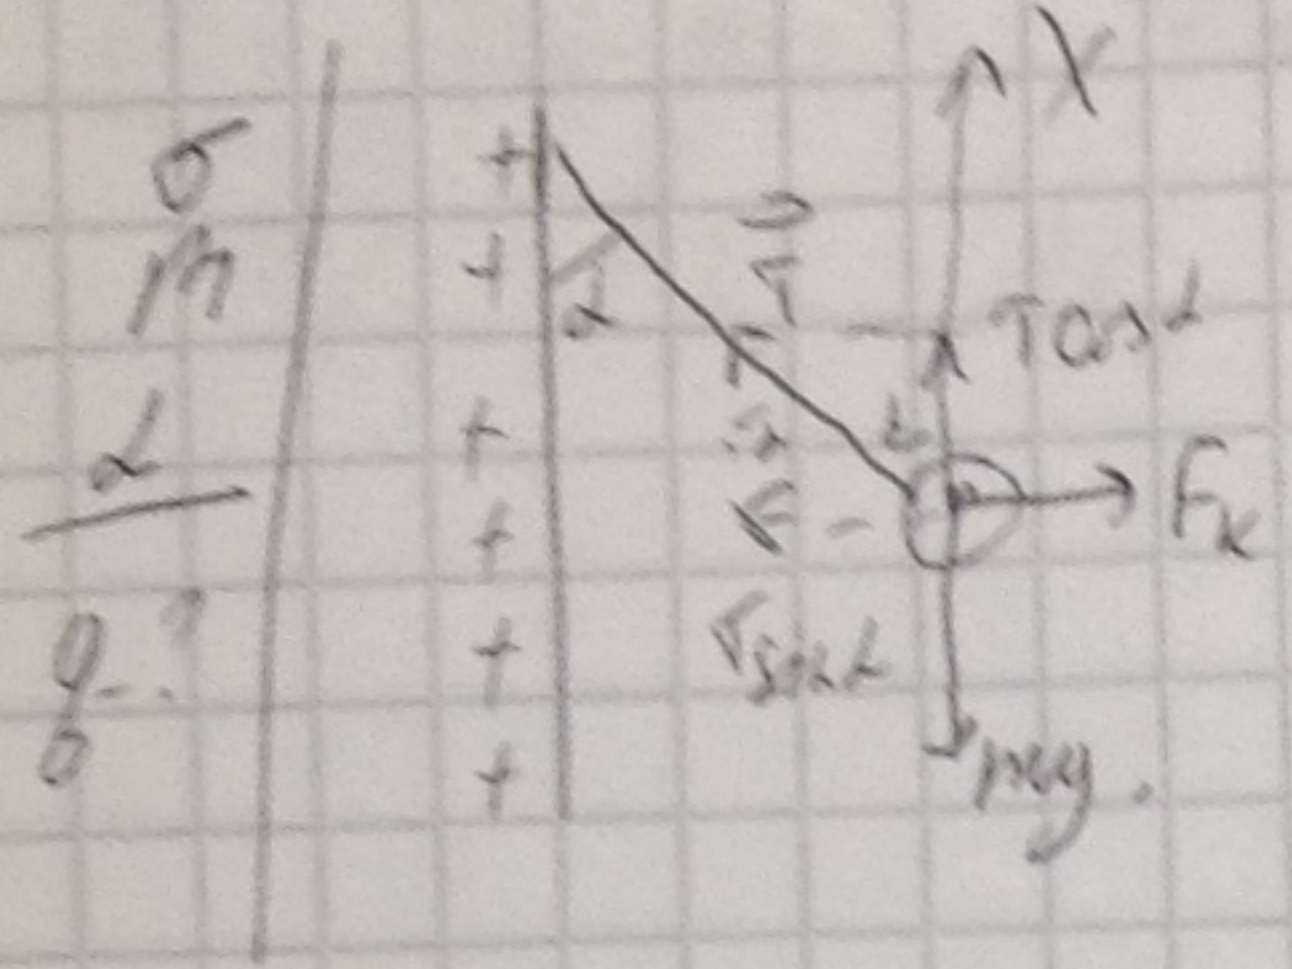 σ
m
α
q - ?
+
+
+
+
+
+
α
T cos α
F_k
T sin α
mg.